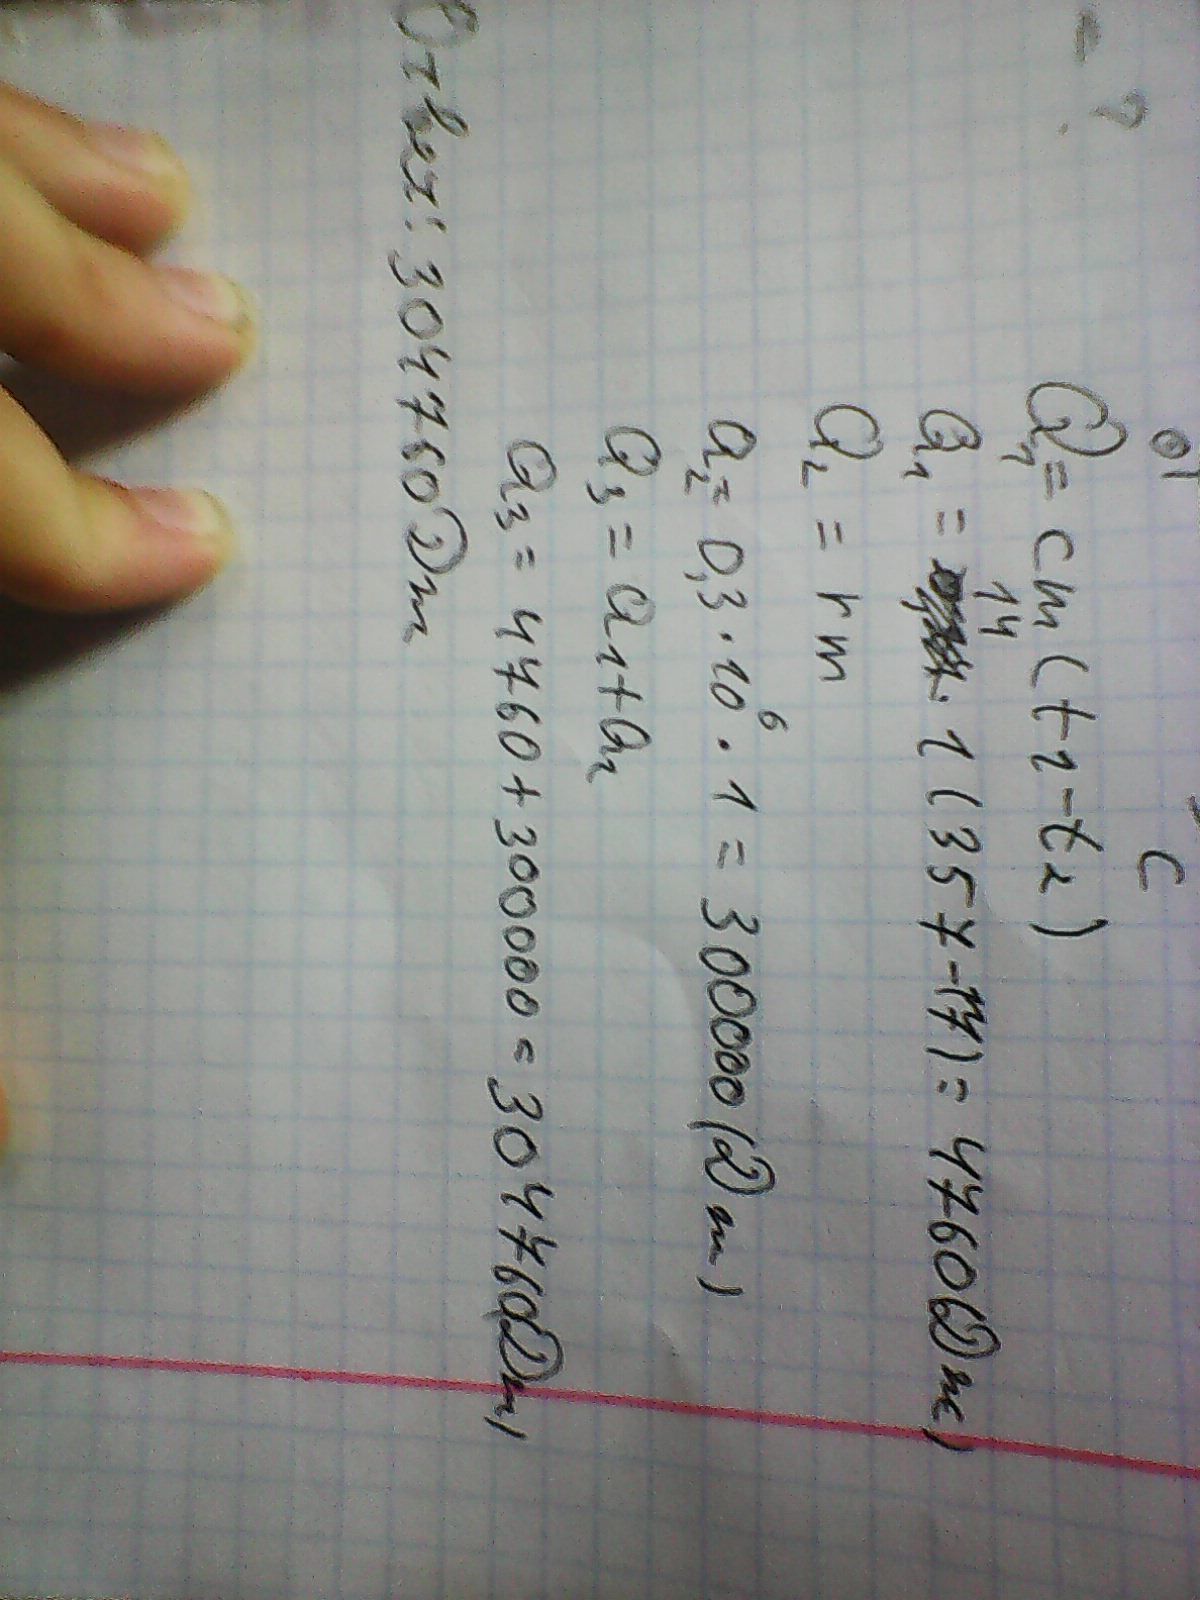 - ?
C
Q₁ = cm(t₂-t₂)
Q₁ = 14·1(357-17)=4760(Дж)
Q₂ = rm
Q₂ = 0,3·10⁶·1 = 300000(Дж)
Q₃ = Q₁+Q₂
Q₃ = 4760+300000=304760(Дж)
Ответ: 304760Дж